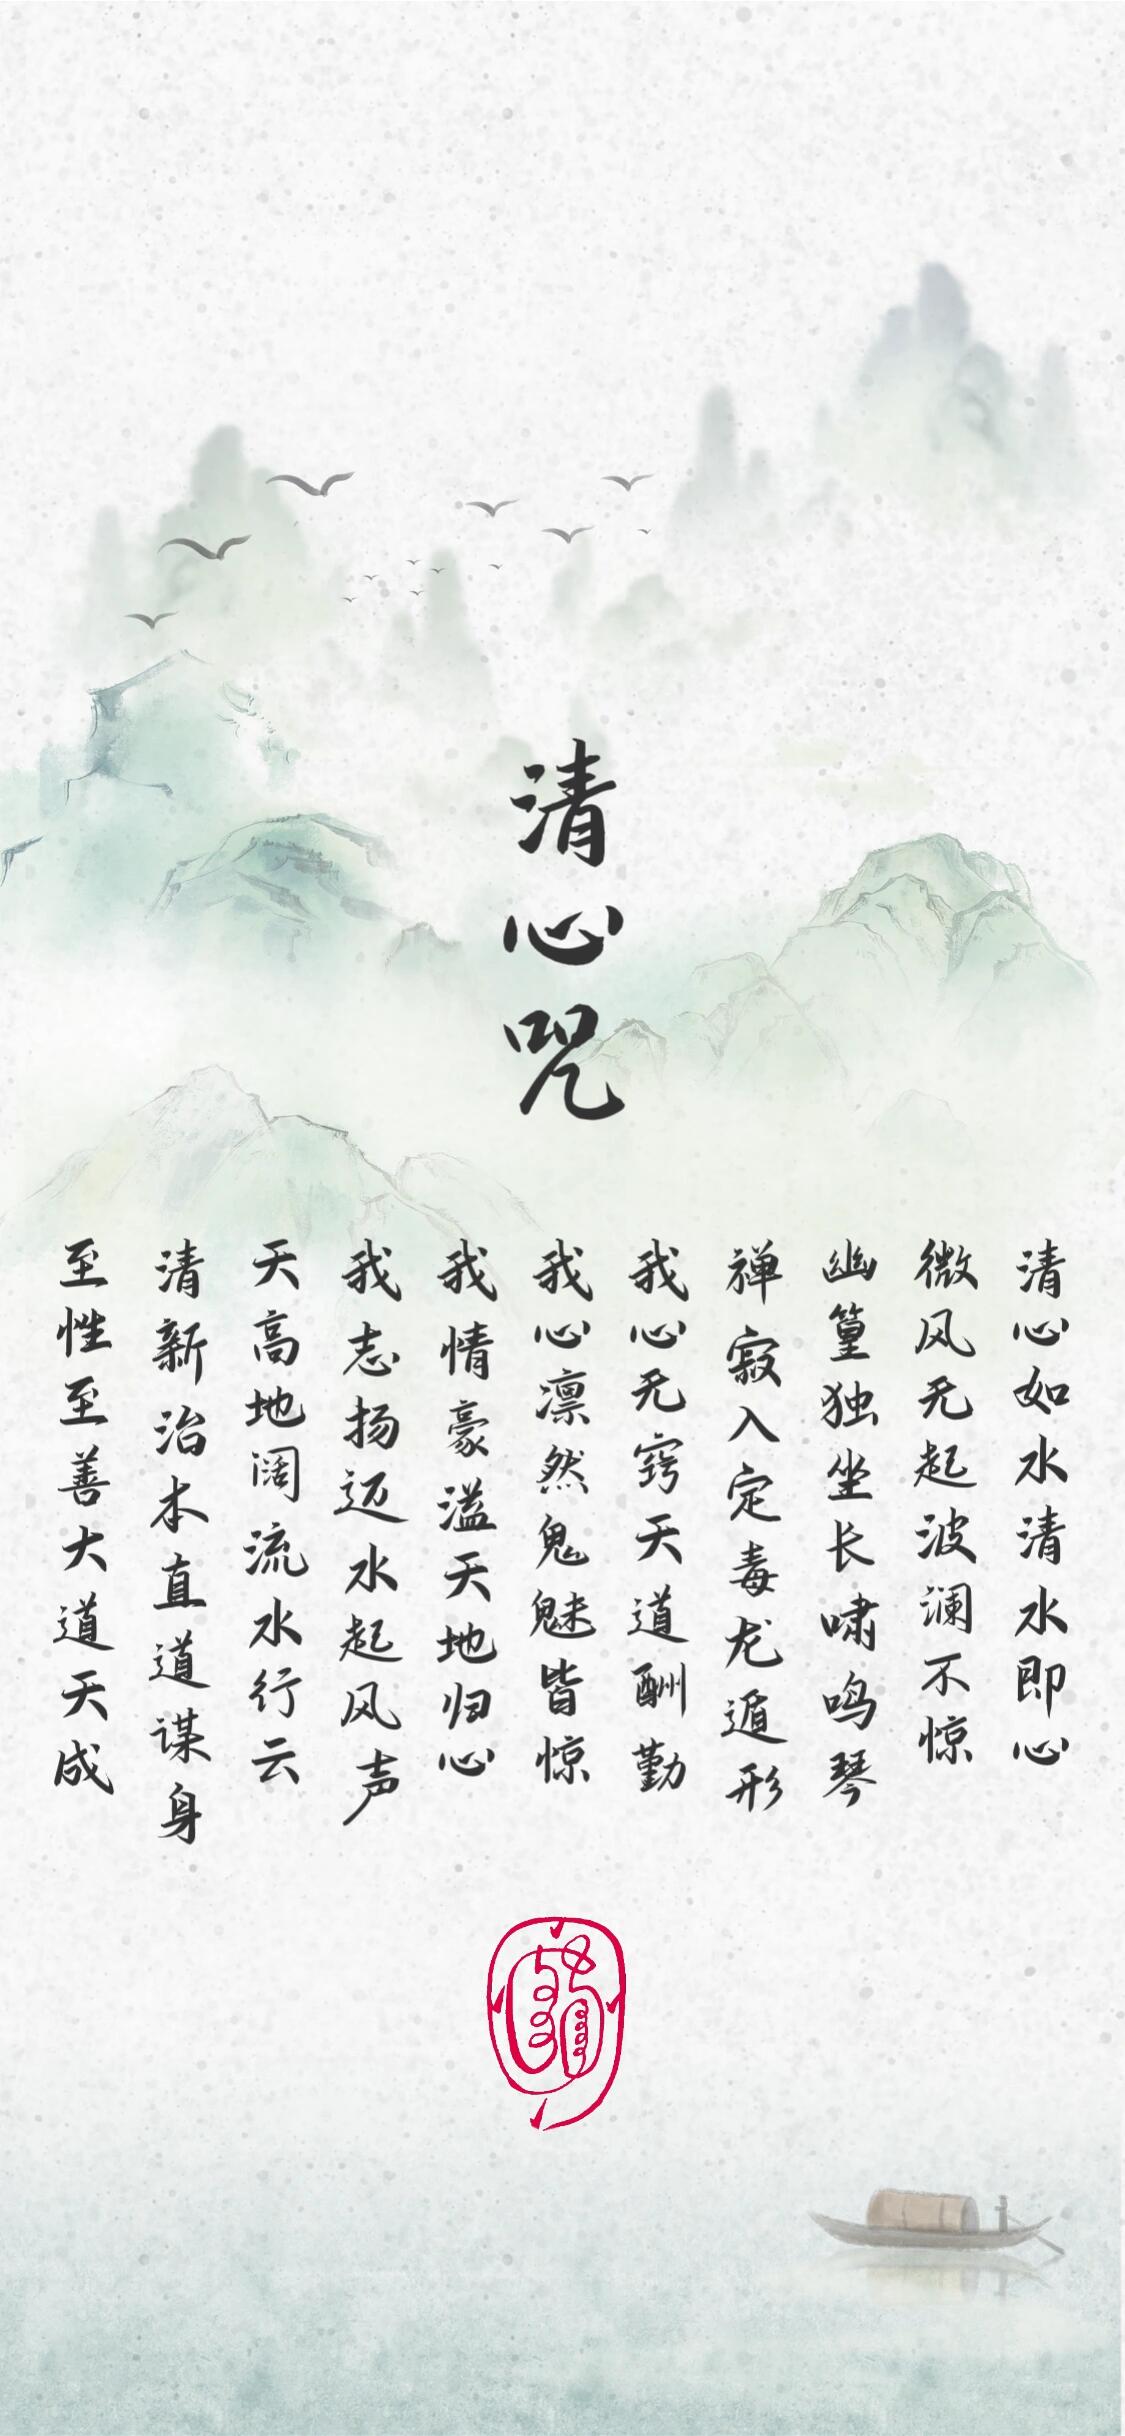 清心咒
清心如水清水即心
微风无起波澜不惊
幽篁独坐长啸鸣琴
禅寂入定毒龙遁形
我心无窍天道酬勤
我心凛然鬼魅皆惊
我情豪溢天地归心
我志扬迈水起风声
天高地阔流水行云
清新治本直道谋身
至性至善大道天成